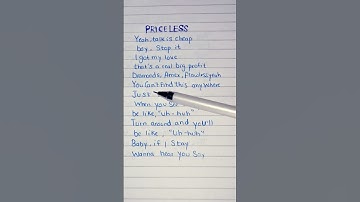 PRICELESS
Yeah, talk is cheap
boy, Stop it
I got my love
that's a real big profit
Diamonds, Amex, Flawless yeah
You Can't find this anywhere
Just
When you See
be like, "Uh-huh"
Turn around and you'll
be like, "Uh-huh"
Baby, if I Stay
Wanna hear you Say